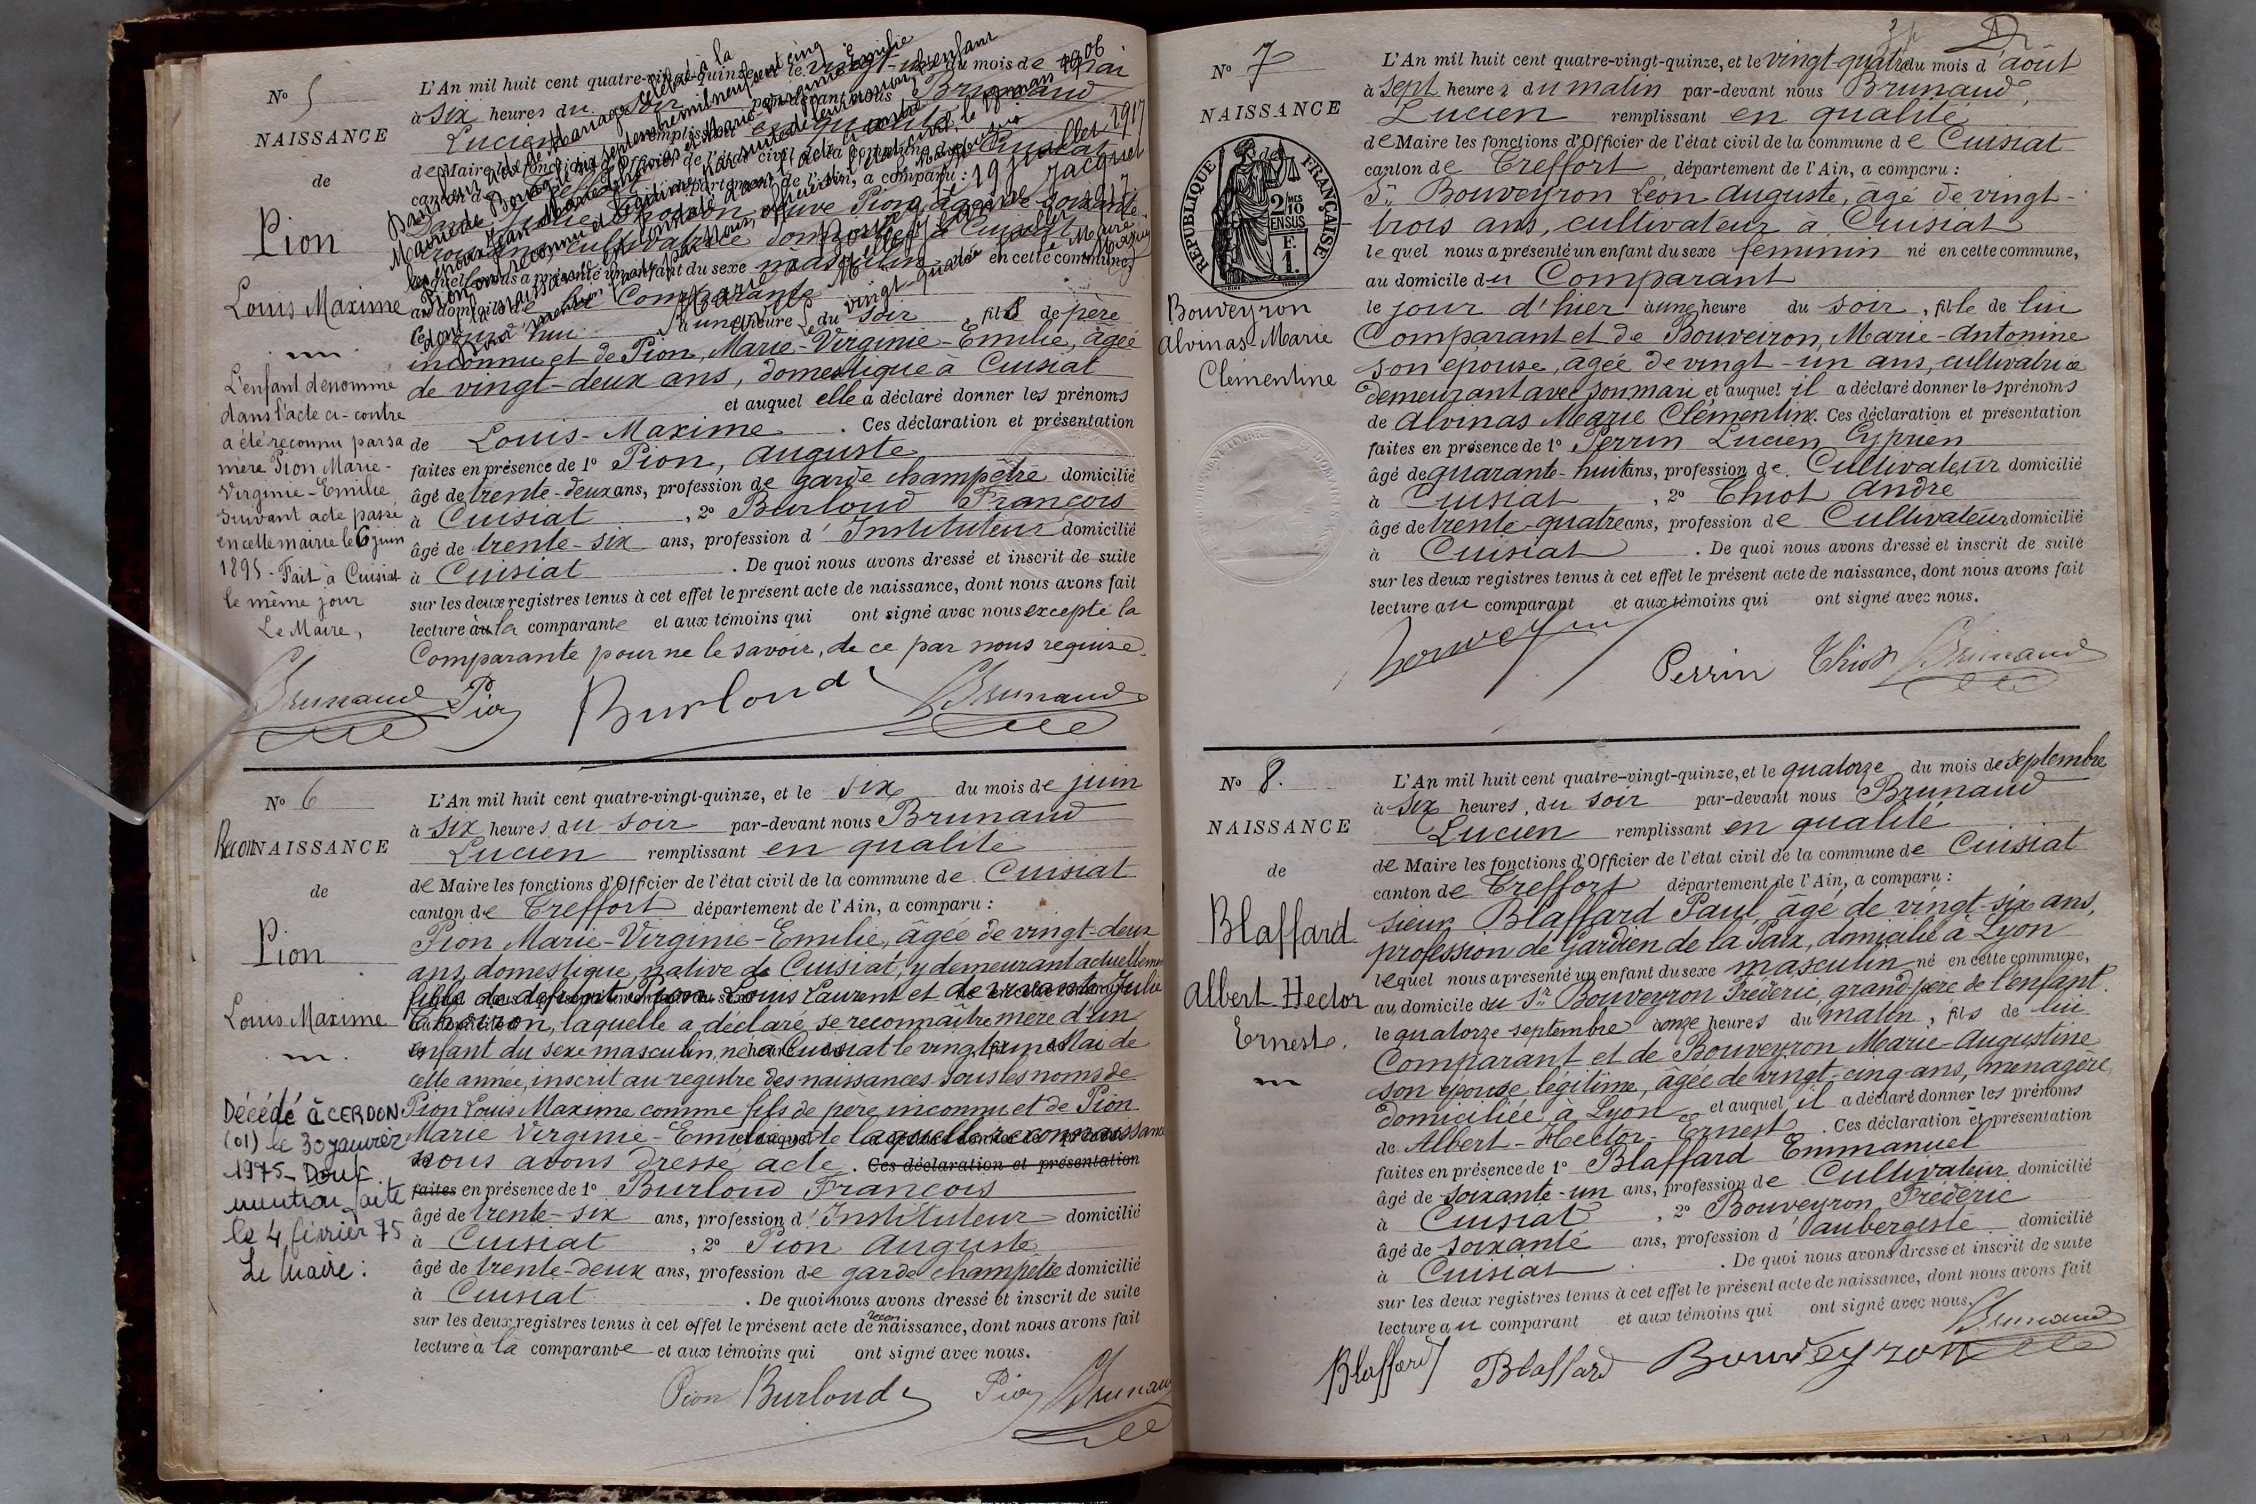 No 5
NAISSANCE
de
Pion
Louis Maxime
L'enfant dénommé
dans l'acte ci-contre
a été reconnu par sa
mère Pion Marie-
Virginie-Emilie
suivant acte passé
en cette mairie le 6 juin
1895 - Fait à Cuisiat
le même jour
Le Maire,
Brunaud
L'An mil huit cent quatre-vingt-quinze, et le vingt-un du mois de mai
à six heures du soir par-devant nous Brunaud
Lucien remplissant en qualité
de Maire les fonctions d'Officier de l'état civil de la commune de Cuisiat
canton de Treffort département de l'Ain, a comparu :
veuve Pion, âgée de soixante-
cultivatrice domiciliée à Cuisiat
laquelle nous a présenté un enfant du sexe masculin né en cette commune,
au domicile de la Comparante
à une heure du soir, fils de père
inconnu et de Pion, Marie-Virginie-Emilie, âgée
de vingt-deux ans, domestique à Cuisiat
et auquel elle a déclaré donner les prénoms
de Louis-Maxime. Ces déclaration et présentation
faites en présence de 1o Pion, Auguste
âgé de trente-deux ans, profession de garde champêtre domicilié
à Cuisiat, 2o Burloud François
âgé de trente-six ans, profession d'Instituteur domicilié
à Cuisiat. De quoi nous avons dressé et inscrit de suite
sur les deux registres tenus à cet effet le présent acte de naissance, dont nous avons fait
lecture à la comparante et aux témoins qui ont signé avec nous excepté la
Comparante pour ne le savoir, de ce par nous requise.
Pion Burloud Brunaud
No 6
ReconNAISSANCE
de
Pion
Louis Maxime
Décédé à CERDON
(01) le 30 janvier
1975 - Dont
mention faite
le 4 février 75
Le Maire :
L'An mil huit cent quatre-vingt-quinze, et le six du mois de juin
à six heures du soir par-devant nous Brunaud
Lucien remplissant en qualité
de Maire les fonctions d'Officier de l'état civil de la commune de Cuisiat
canton de Treffort département de l'Ain, a comparu :
Pion, Marie-Virginie-Emilie, âgée de vingt-deux
ans, domestique, native de Cuisiat, y demeurant actuellement
fille de défunt Pion Louis Laurent et de vivante Julie
laquelle a déclaré se reconnaître mère d'un
enfant du sexe masculin, né à Cuisiat le vingt un Mai de
cette année, inscrit au registre des naissances sous les noms de
Pion Louis Maxime comme fils de père inconnu et de Pion
Marie Virginie-Emilie, de laquelle reconnaissance
nous avons dressé acte. Ces déclaration et présentation
faites en présence de 1o Burloud François
âgé de trente-six ans, profession d'Instituteur domicilié
à Cuisiat, 2o Pion Auguste
âgé de trente-deux ans, profession de garde champêtre domicilié
à Cuisiat. De quoi nous avons dressé et inscrit de suite
sur les deux registres tenus à cet effet le présent acte de reconnaissance, dont nous avons fait
lecture à la comparante et aux témoins qui ont signé avec nous.
Pion Burloud Pion Brunaud
No 7
NAISSANCE
de
RÉPUBLIQUE FRANÇAISE
2 10MES
EN SUS
F.
1.
Bouveyron
Alvinas Marie
Clémentine
L'An mil huit cent quatre-vingt-quinze, et le vingt-quatre du mois d'août
à sept heures du matin par-devant nous Brunaud,
Lucien remplissant en qualité
de Maire les fonctions d'Officier de l'état civil de la commune de Cuisiat
canton de Treffort département de l'Ain, a comparu :
Sr Bouveyron Léon Auguste, âgé de vingt-
trois ans, cultivateur à Cuisiat
lequel nous a présenté un enfant du sexe féminin né en cette commune,
au domicile du Comparant
le jour d'hier à une heure du soir, fille de lui
Comparant et de Bouveiron, Marie-Antonine
son épouse, âgée de vingt-un ans, cultivatrice
demeurant avec son mari et auquel il a déclaré donner les prénoms
de Alvinas Marie Clémentine. Ces déclaration et présentation
faites en présence de 1o Perrin Lucien Cyprien
âgé de quarante-huit ans, profession de Cultivateur domicilié
à Cuisiat, 2o Thiot André
âgé de trente-quatre ans, profession de Cultivateur domicilié
à Cuisiat. De quoi nous avons dressé et inscrit de suite
sur les deux registres tenus à cet effet le présent acte de naissance, dont nous avons fait
lecture au comparant et aux témoins qui ont signé avec nous.
Perrin Thiot Brunaud
No 8.
NAISSANCE
de
Blaffard
Albert Hector
Ernest.
L'An mil huit cent quatre-vingt-quinze, et le quatorze du mois de septembre
à six heures du soir par-devant nous Brunaud
Lucien remplissant en qualité
de Maire les fonctions d'Officier de l'état civil de la commune de Cuisiat
canton de Treffort département de l'Ain, a comparu :
sieur Blaffard Paul, âgé de vingt-six ans,
profession de Gardien de la Paix, domicilié à Lyon
lequel nous a présenté un enfant du sexe masculin né en cette commune,
au domicile du Sr Bouveyron Frédéric, grand-père de l'enfant.
le quatorze septembre à onze heures du matin, fils de lui
Comparant et de Bouveyron Marie-Augustine
son épouse légitime, âgée de vingt-cinq ans, ménagère,
domiciliée à Lyon et auquel il a déclaré donner les prénoms
de Albert-Hector-Ernest. Ces déclaration et présentation
faites en présence de 1o Blaffard Emmanuel
âgé de soixante-un ans, profession de Cultivateur domicilié
à Cuisiat, 2o Bouveyron Frédéric
âgé de soixante ans, profession d'aubergiste domicilié
à Cuisiat. De quoi nous avons dressé et inscrit de suite
sur les deux registres tenus à cet effet le présent acte de naissance, dont nous avons fait
lecture au comparant et aux témoins qui ont signé avec nous.
Brunaud
Blaffard Blaffard Bouveyron